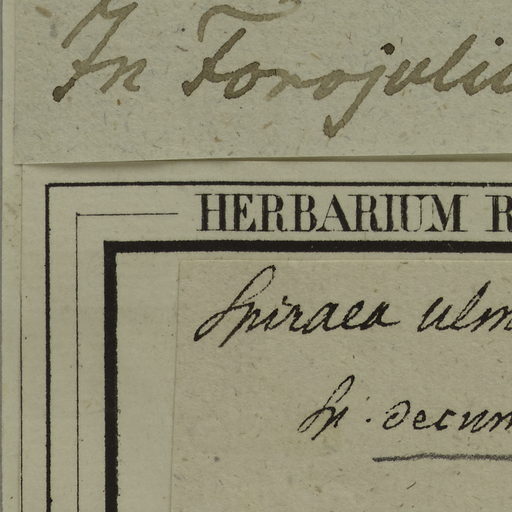 In Forojuliu
HERBARIUM R
Spiraea ulm
Sp. decum